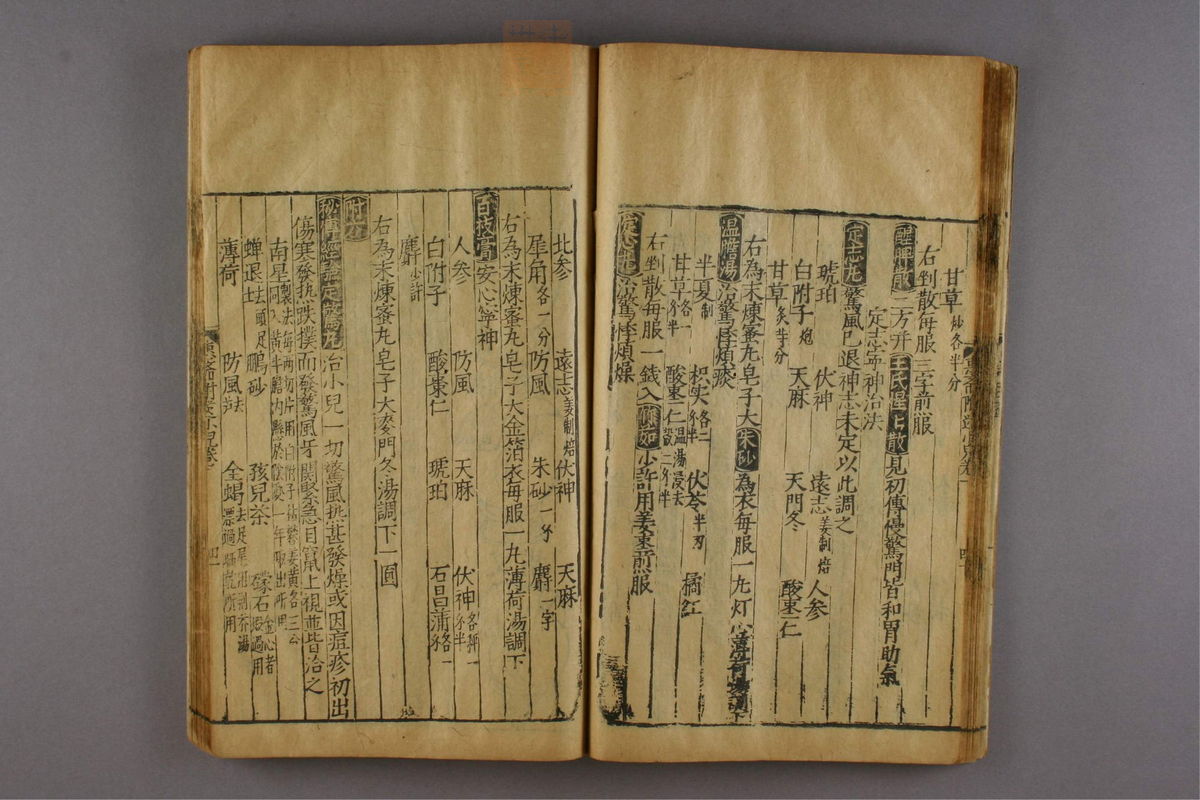 甘草炒各半分
右剉散每服三字煎服
醒脾散二方并王氏惺惺散見初傳慢驚門皆和胃助氣
定志寧神治法
定志丸驚風已退神志未定以此調之
琥珀 茯神 遠志姜制焙 人參
白附子炮 天麻 天門冬 酸棗仁
甘草炙等分
右為末煉蜜丸皂子大朱砂為衣每服一丸灯心薄荷湯調下
温膽湯治驚悸煩痰
半夏制 枳实各二分半 伏苓半刃 橘紅
甘草各一分半 酸棗仁温湯浸去殼二分半
右剉散每服一錢入竹茹少許用姜棗煎服
定志丸治驚悸煩燥
北參 遠志姜制焙 伏神 天麻
犀角各一分 防風 朱砂一分 麝一字
右為末煉蜜丸皂子大金箔衣每服一丸薄荷湯調下
百枝膏安心寧神
人參 防風 天麻 伏神各稱一分半
白附子 酸棗仁 琥珀 石昌蒲各一分
麝少許
右為末煉蜜丸皂子大麥門冬湯調下一圓
附方
秘傳經驗定驚丸治小兒一切驚風熱甚發燥或因痘疹初出
傷寒發熱跌撲而發驚風牙關緊急目竄上視並皆治之
南星製法每兩切片用白附子
蟬退去頭足土 鵬砂 孩兒茶 礞石金心者煅過用
薄荷 防風 全蝎去足尾